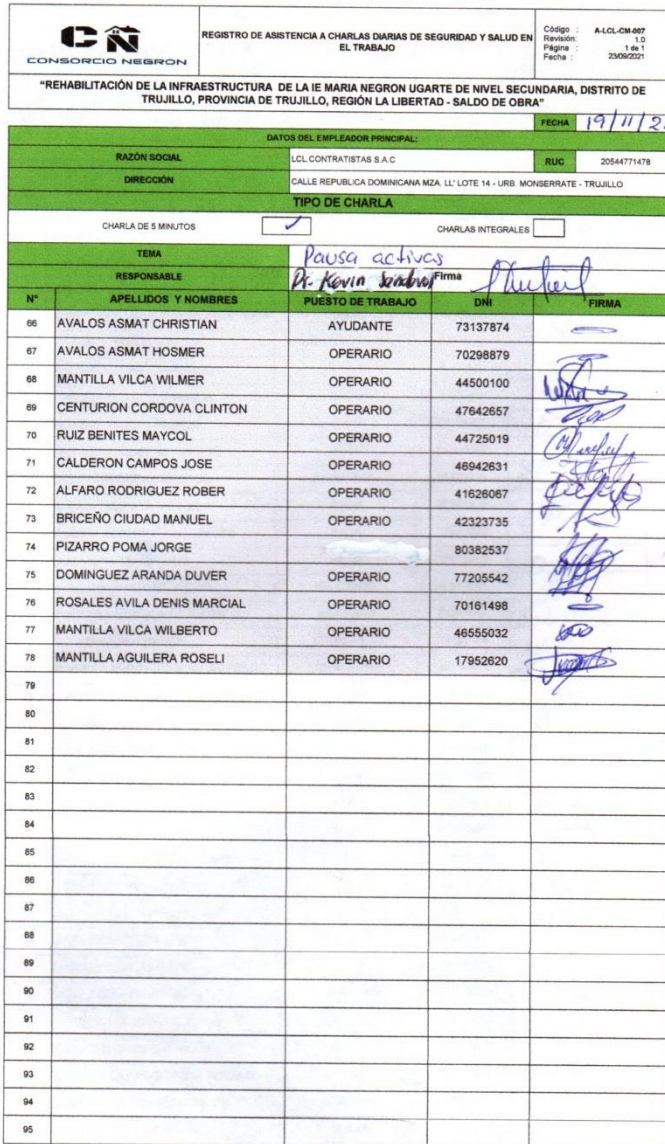 CN
CONSORCIO NEGRON
REGISTRO DE ASISTENCIA A CHARLAS DIARIAS DE SEGURIDAD Y SALUD EN
EL TRABAJO
Código : A-LCL-CM-007
Revisión: 1.0
Página : 1 de 1
Fecha : 23/09/2021
"REHABILITACIÓN DE LA INFRAESTRUCTURA DE LA IE MARIA NEGRON UGARTE DE NIVEL SECUNDARIA, DISTRITO DE
TRUJILLO, PROVINCIA DE TRUJILLO, REGIÓN LA LIBERTAD - SALDO DE OBRA"
FECHA 19/11/2
DATOS DEL EMPLEADOR PRINCIPAL:
RAZÓN SOCIAL LCL CONTRATISTAS S.A.C RUC 20544771478
DIRECCIÓN CALLE REPUBLICA DOMINICANA MZA. LL' LOTE 14 - URB. MONSERRATE - TRUJILLO
TIPO DE CHARLA
CHARLA DE 5 MINUTOS ✓ CHARLAS INTEGRALES
TEMA Pausa activas
RESPONSABLE Dr. Kevin Sandoval Firma
N° APELLIDOS Y NOMBRES PUESTO DE TRABAJO DNI FIRMA
66 AVALOS ASMAT CHRISTIAN AYUDANTE 73137874
67 AVALOS ASMAT HOSMER OPERARIO 70298879
68 MANTILLA VILCA WILMER OPERARIO 44500100
69 CENTURION CORDOVA CLINTON OPERARIO 47642657
70 RUIZ BENITES MAYCOL OPERARIO 44725019
71 CALDERON CAMPOS JOSE OPERARIO 46942631
72 ALFARO RODRIGUEZ ROBER OPERARIO 41626067
73 BRICEÑO CIUDAD MANUEL OPERARIO 42323735
74 PIZARRO POMA JORGE 80382537
75 DOMINGUEZ ARANDA DUVER OPERARIO 77205542
76 ROSALES AVILA DENIS MARCIAL OPERARIO 70161498
77 MANTILLA VILCA WILBERTO OPERARIO 46555032
78 MANTILLA AGUILERA ROSELI OPERARIO 17952620
79
80
81
82
83
84
85
86
87
88
89
90
91
92
93
94
95